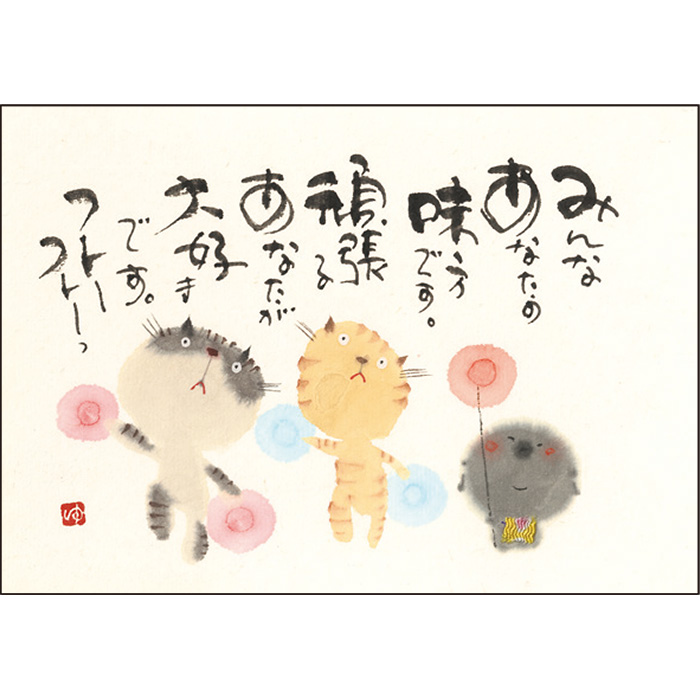 みんな
あなたの
味方です。
頑張る
あなたが
大好き
です。
フレー
フレーっ
ゆ